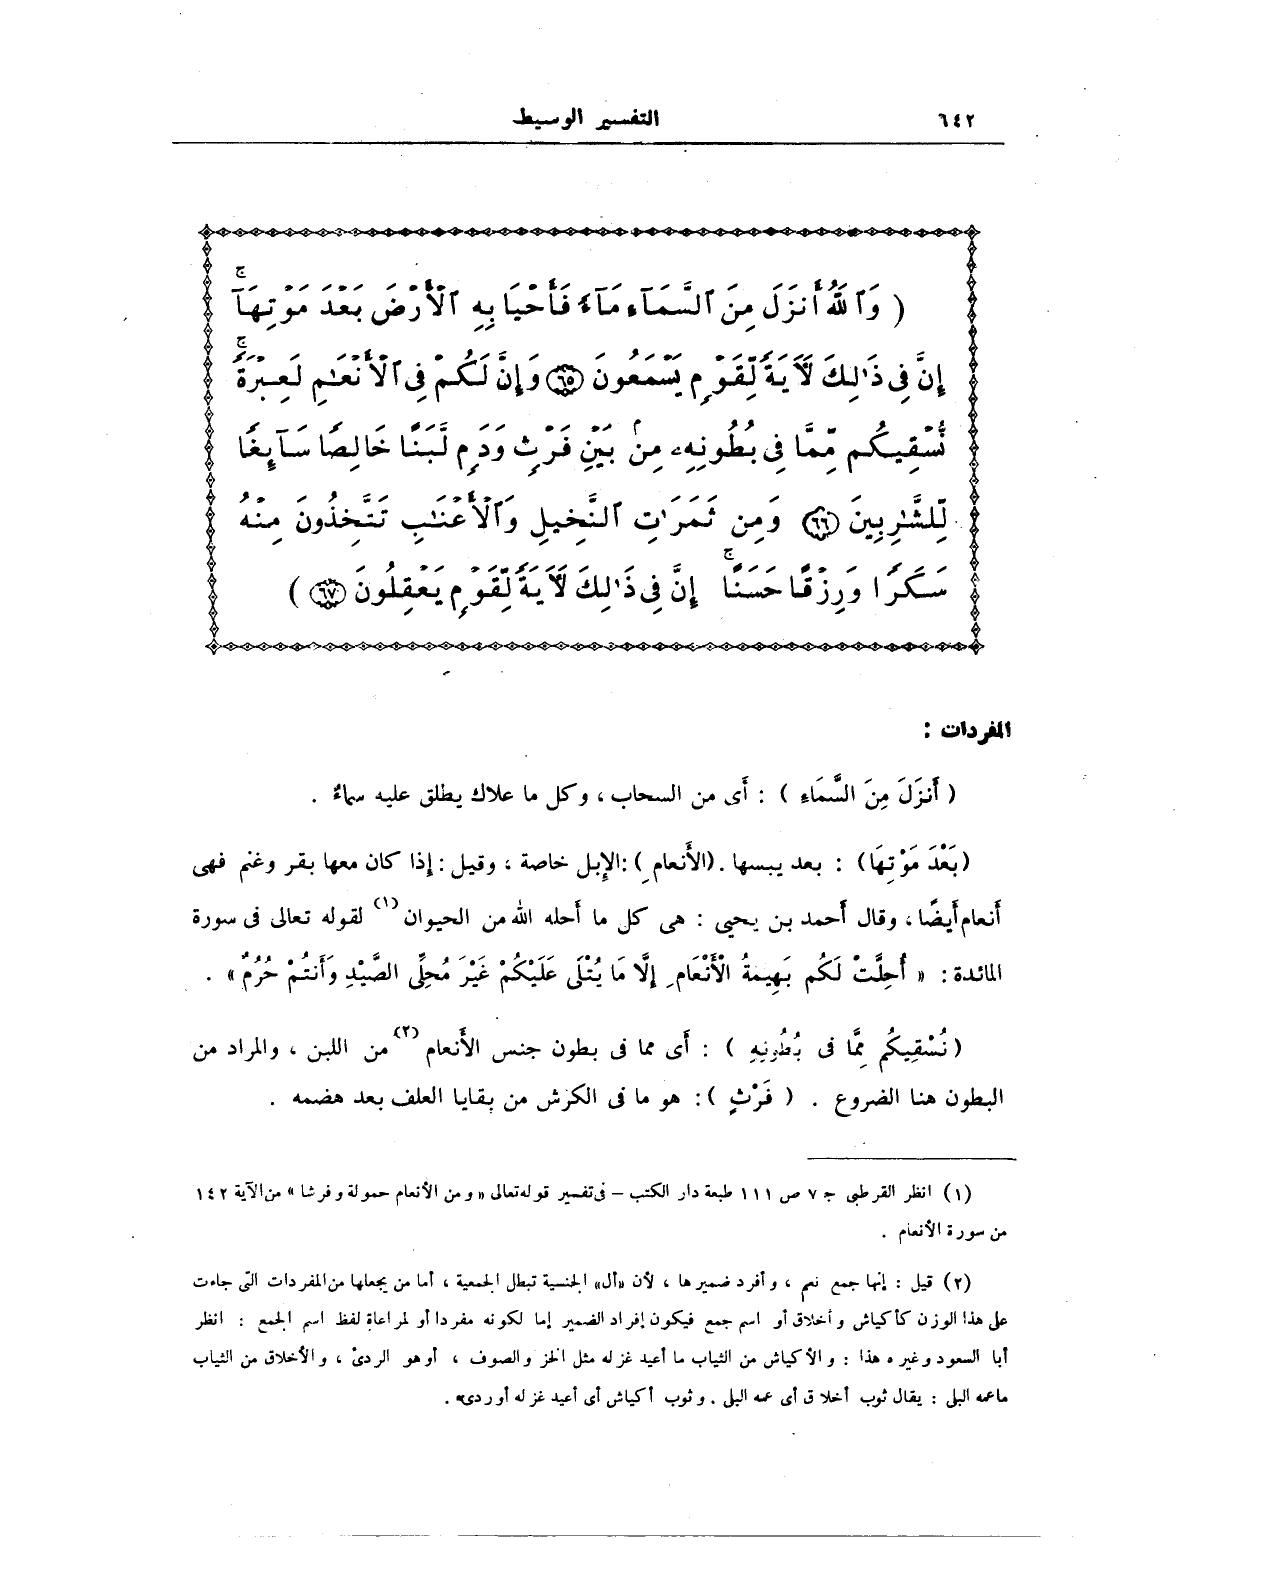 ٦٤٢
التفسير الوسيط
( وَٱللَّهُ أَنزَلَ مِنَ ٱلسَّمَآءِ مَآءً فَأَحْيَا بِهِ ٱلْأَرْضَ بَعْدَ مَوْتِهَآ ۚ
إِنَّ فِى ذَٰلِكَ لَـَٔايَةً لِّقَوْمٍ يَسْمَعُونَ ﴿٦٥﴾ وَإِنَّ لَكُمْ فِى ٱلْأَنْعَـٰمِ لَعِبْرَةً ۖ
نُّسْقِيكُم مِّمَّا فِى بُطُونِهِۦ مِنۢ بَيْنِ فَرْثٍ وَدَمٍ لَّبَنًا خَالِصًا سَآئِغًا
لِّلشَّـٰرِبِينَ ﴿٦٦﴾ وَمِن ثَمَرَٰتِ ٱلنَّخِيلِ وَٱلْأَعْنَـٰبِ تَتَّخِذُونَ مِنْهُ
سَكَرًا وَرِزْقًا حَسَنًا ۚ إِنَّ فِى ذَٰلِكَ لَـَٔايَةً لِّقَوْمٍ يَعْقِلُونَ ﴿٦٧﴾ )
المفردات :
( أَنزَلَ مِنَ السَّمَاءِ ) : أَى من السحاب ، وكل ما علاك يطلق عليه سماءٌ .
(بَعْدَ مَوْتِهَا) : بعد يبسها .(الأَنعام ) :الإِبل خاصة ، وقيل : إِذا كان معها بقر وغنم فهى
أَنعام أَيضًا ، وقال أَحمد بن يحيى : هى كل ما أَحله الله من الحيوان (١) لقوله تعالى فى سورة
المائدة : « أُحِلَّتْ لَكُم بَهِيمَةُ الْأَنْعَامِ إِلَّا مَا يُتْلَى عَلَيْكُمْ غَيْرَ مُحِلِّى الصَّيْدِ وَأَنتُمْ حُرُمٌ » .
( نُسْقِيكُم مِمَّا فى بُطُونِهِ ) : أَى مما فى بطون جنس الأَنعام (٢) من اللبن ، والمراد من
البطون هنا الضروع . ( فَرْثٍ ) : هو ما فى الكرش من بقايا العلف بعد هضمه .
(١) انظر القرطبى ج ٧ ص ١١١ طبعة دار الكتب – فى تفسير قوله تعالى « ومن الأنعام حمولة وفرشا » من الآية ١٤٢
من سورة الأنعام .
(٢) قيل : إنها جمع نعم ، وأفرد ضميرها ، لأن «أل» الجنسية تبطل الجمعية ، أما من يجعلها من المفردات التى جاءت
على هذا الوزن كأكياش وأخلاق أو اسم جمع فيكون إفراد الضمير إما لكونه مفردا أو لمراعاة لفظ اسم الجمع : انظر
أبا السعود وغيره هذا : والأكياش من الثياب ما أعيد غزله مثل الخز والصوف ، أو هو الردئ ، والأخلاق من الثياب
ماعمه البلى : يقال ثوب أخلاق أى عمه البلى . وثوب أكياش أى أعيد غزله أو ردىء .